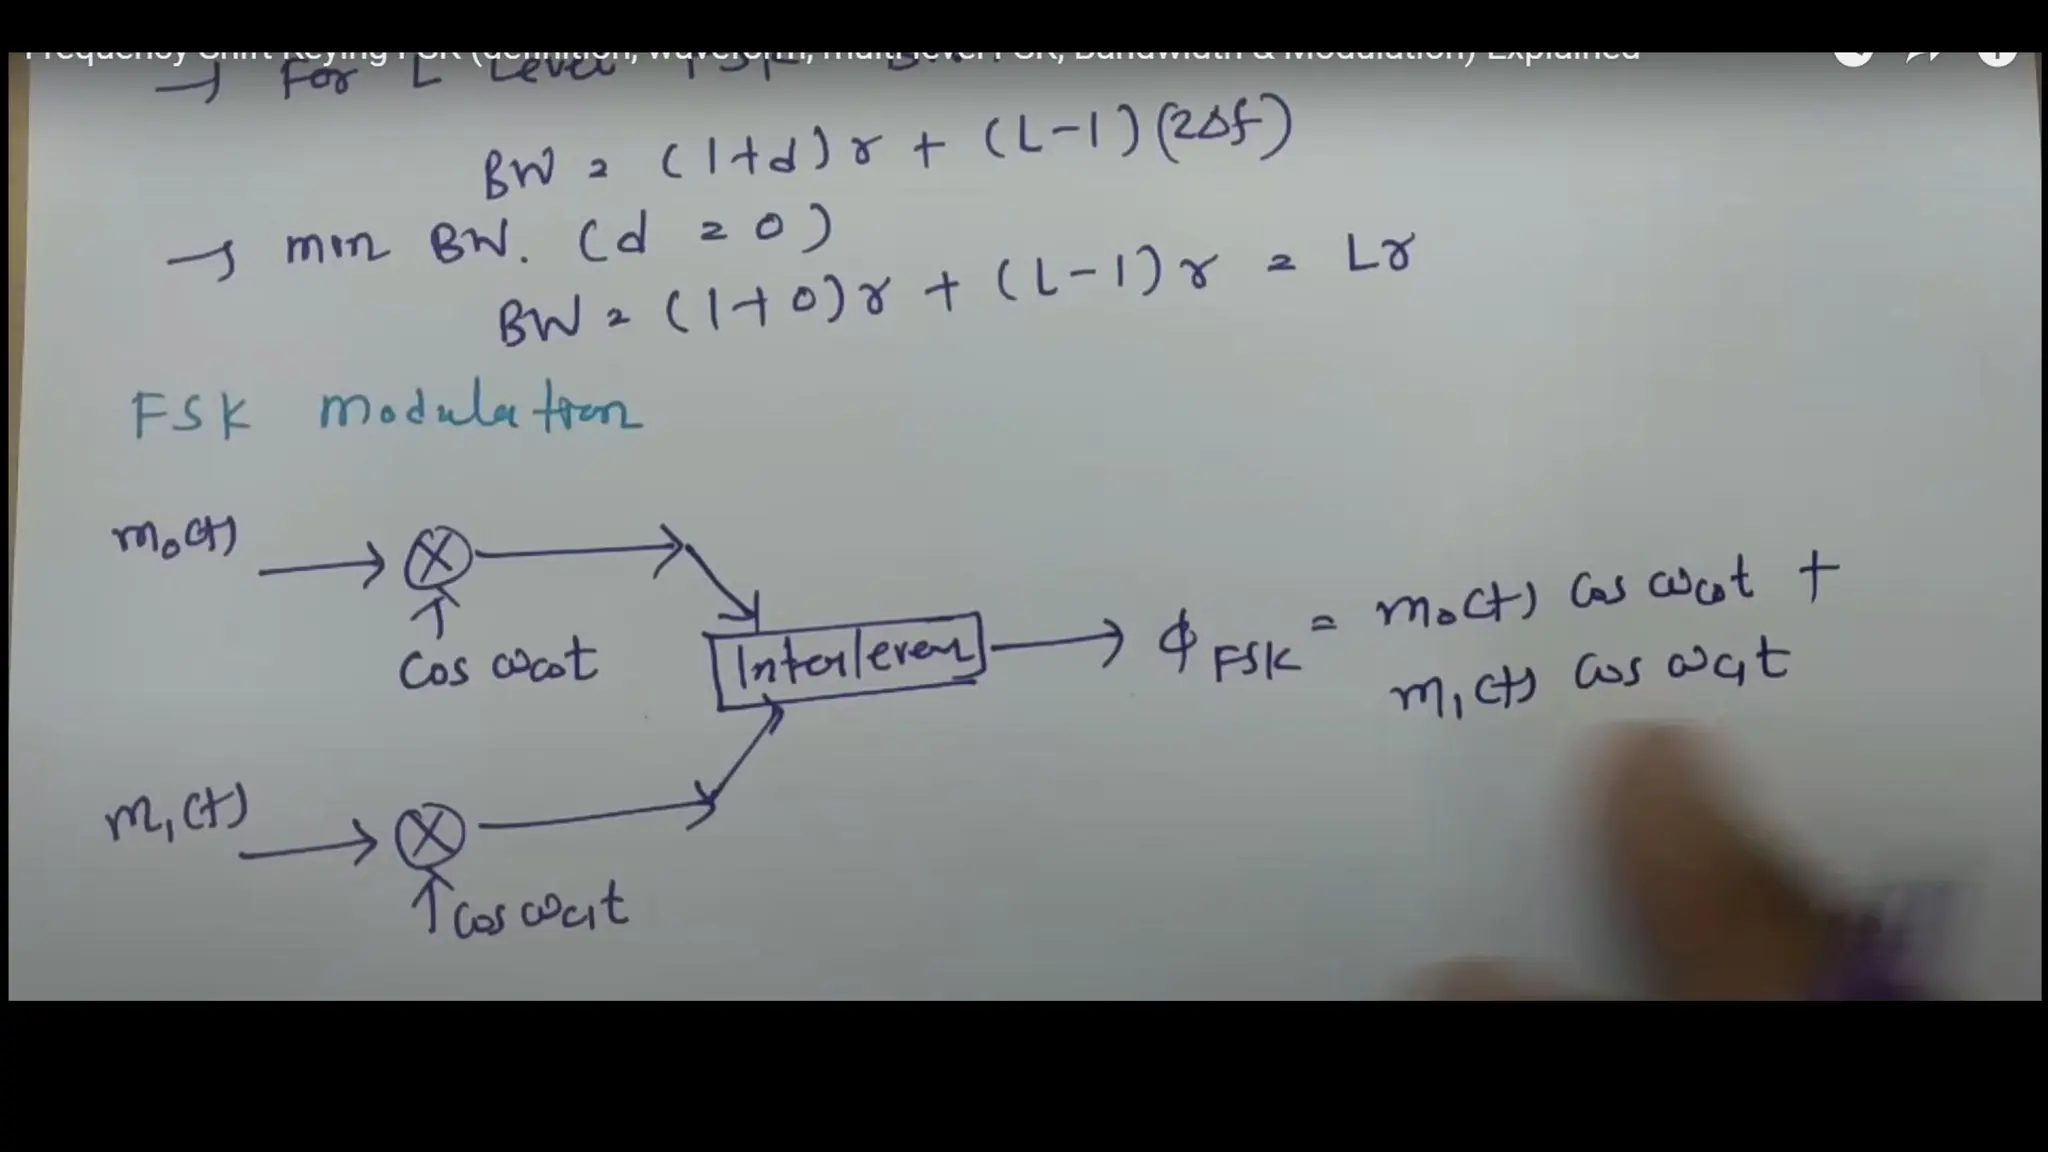 Frequency Shift Keying FSK (definition, waveform, multi level FSK, Bandwidth & Modulation) Explained
→ For L Level FSK
BW = (1+d)r + (L-1)(2Δf)
→ min BW. (d = 0)
BW = (1+0)r + (L-1)r = Lr
FSK modulation
m₀(t)
cos ωc₀t
Interleaver
ϕFSK = m₀(t) cos ωc₀t +
m₁(t) cos ωc₁t
m₁(t)
cos ωc₁t